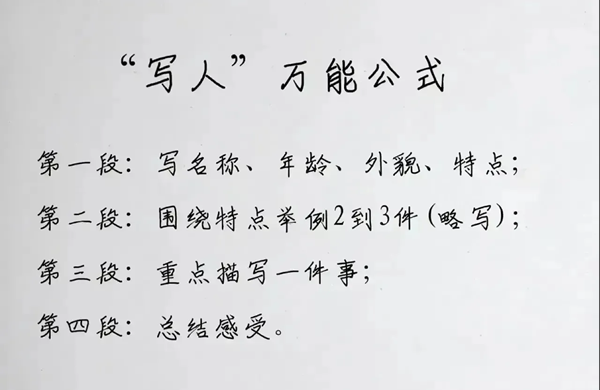 “写人”万能公式
第一段：写名称、年龄、外貌、特点；
第二段：围绕特点举例2到3件(略写)；
第三段：重点描写一件事；
第四段：总结感受。